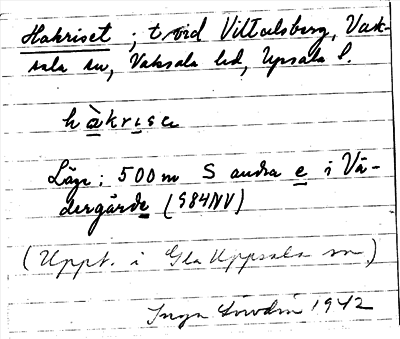 Hakriset ; t. vid Villtulsberg, Vak-
sala sn, Vaksala hd, Upsala l.
hàkrise
Läge: 500m S andra e i Vä-
dergårde (S84NV)
(Uppt. i Gla Uppsala sn.)
Inga Lowdin 1942